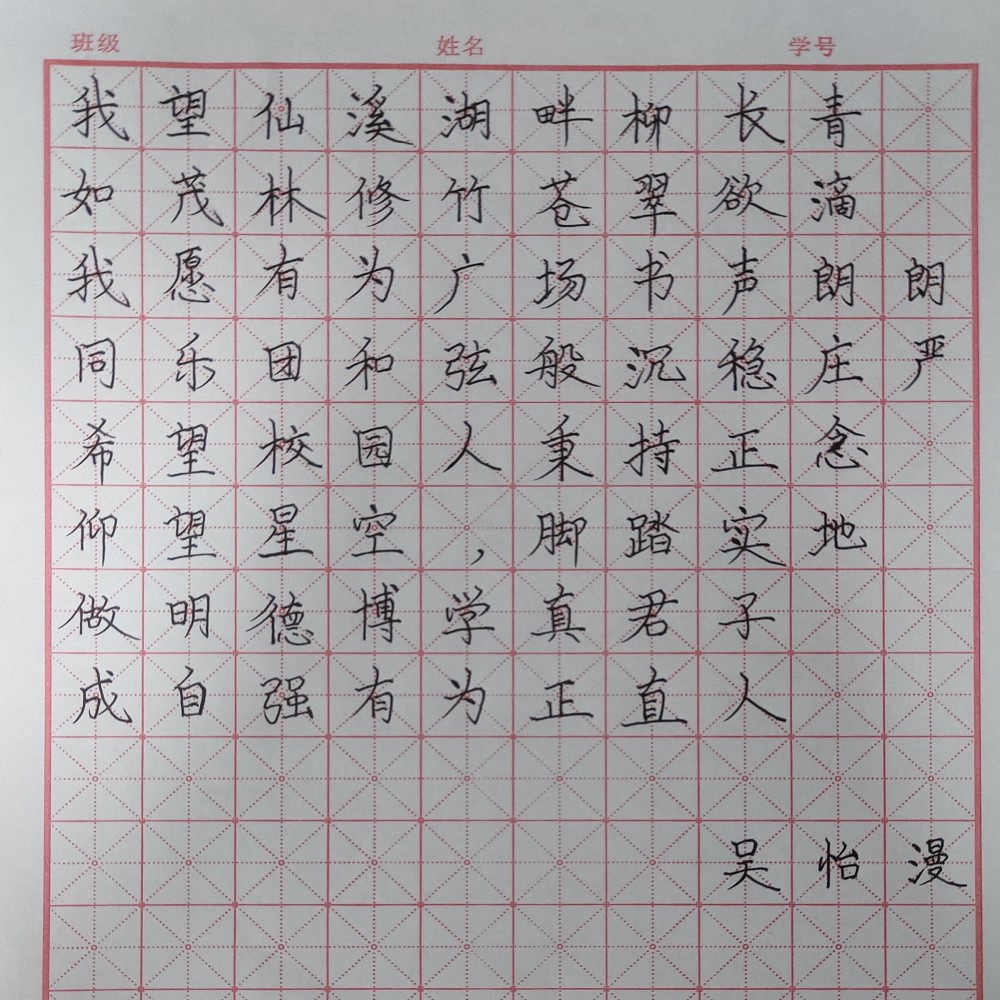 班级 姓名 学号
我望仙溪湖畔柳长青
如茂林修竹苍翠欲滴
我愿有为广场书声朗朗
同乐团和弦般沉稳庄严
希望校园人秉持正念
仰望星空，脚踏实地
做明德博学真君子
成自强有为正直人
吴怡漫